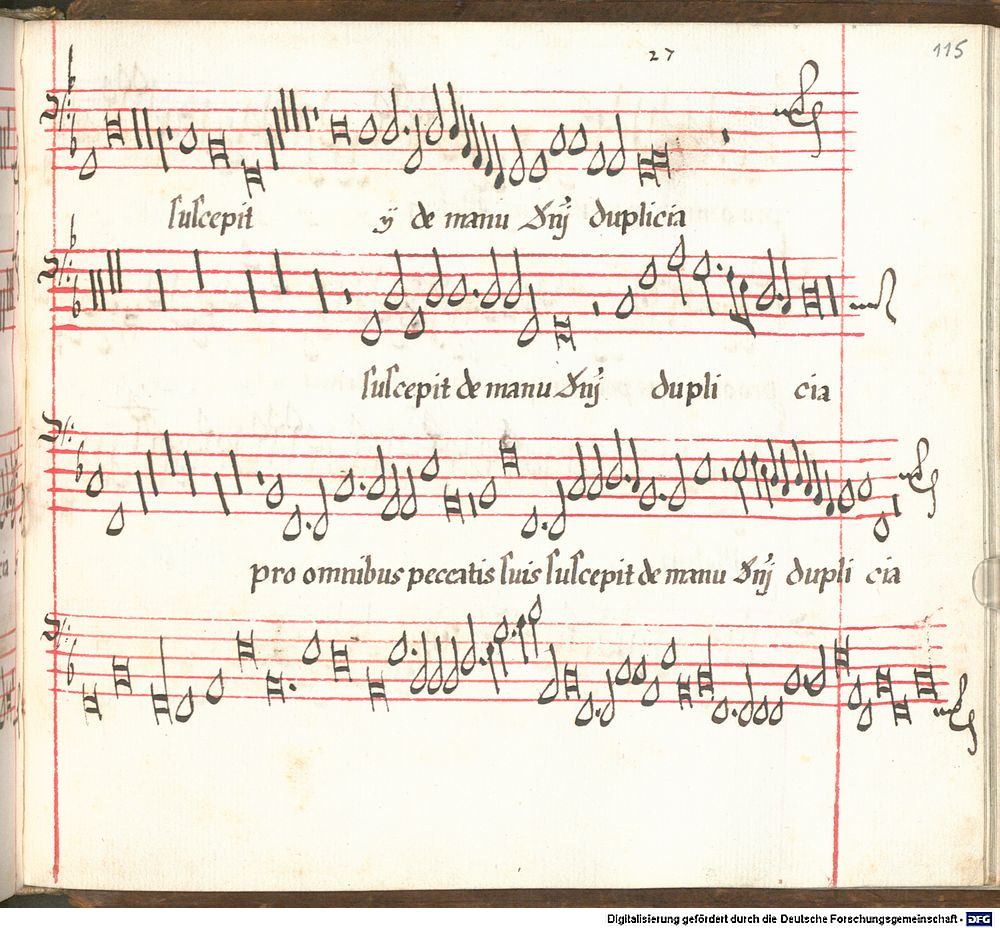 27
115
suscepit ij de manu dnj duplicia
suscepit de manu dnj dupli cia
pro omnibus peccatis suis suscepit de manu dnj dupli cia
Digitalisierung gefördert durch die Deutsche Forschungsgemeinschaft - DFG